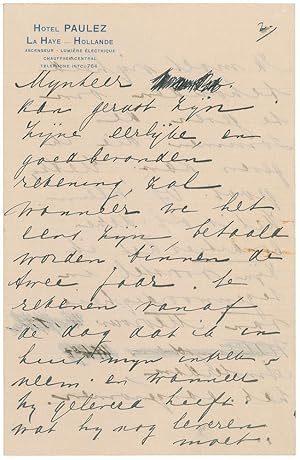 2
HOTEL PAULEZ
LA HAYE - HOLLANDE
ASCENSEUR - LUMIÈRE ÉLECTRIQUE
CHAUFFAGE CENTRAL
TELEPHONE INTC: 764
Mijnheer
kan gerust zijn
zijne eerlijke, en
goedbevonden
rekening, zal
wanneer we het
eens zijn, betaald
worden binnen de
twee jaar. te
rekenen vanaf
de dag dat ik in
huis mijn intrek
neem. en wanneer
hij geleverd heeft.
wat hij nog leveren
moet.